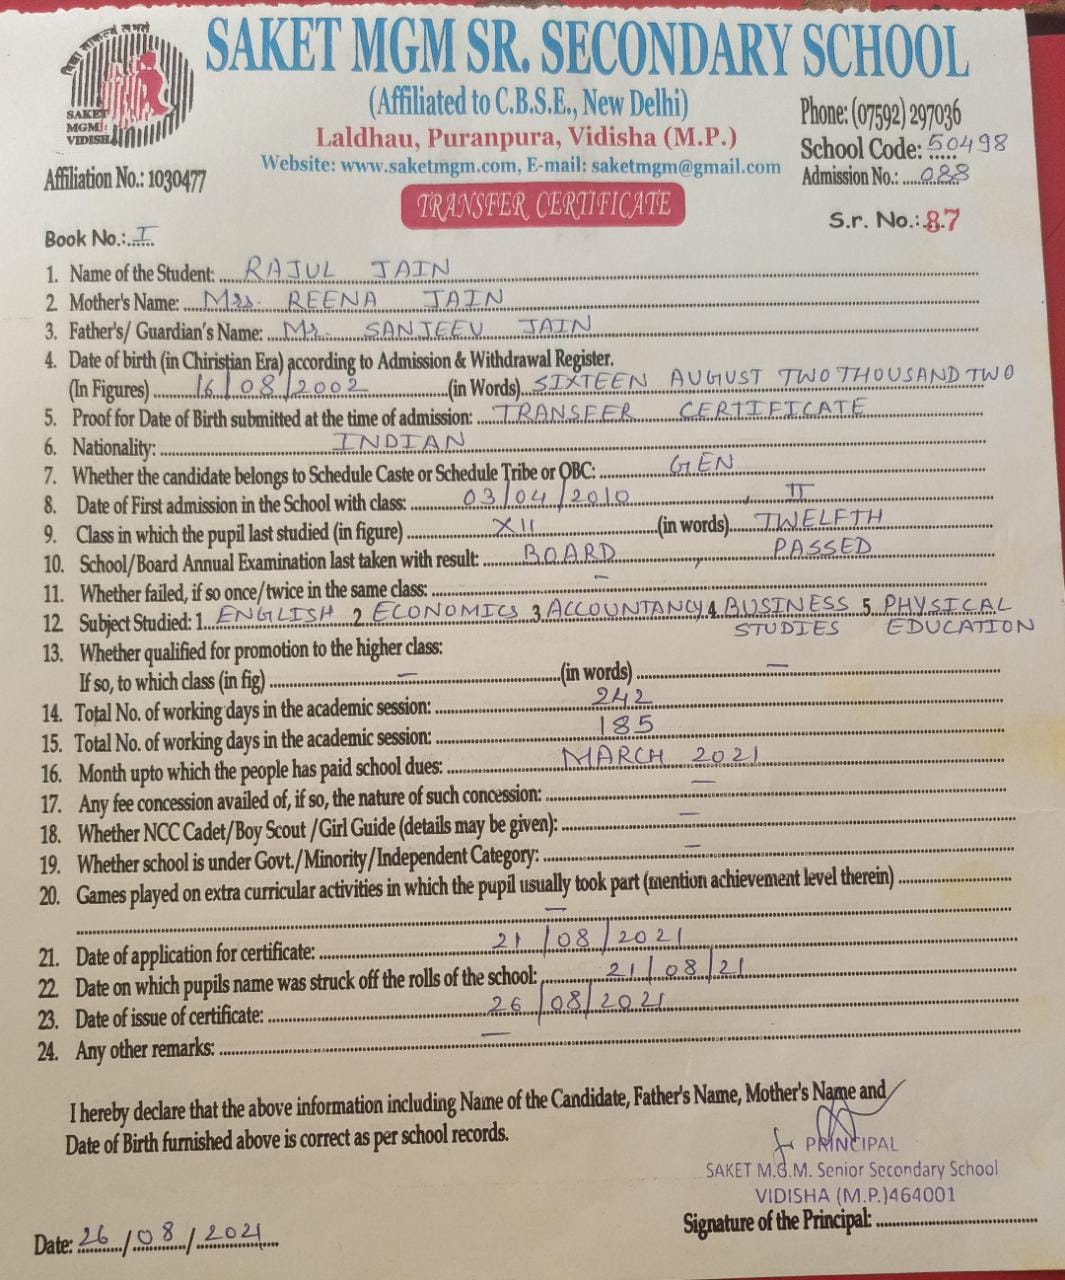 SAKET MGM SR. SECONDARY SCHOOL
(Affiliated to C.B.S.E., New Delhi)
Laldhau, Puranpura, Vidisha (M.P.)
Website: www.saketmgm.com, E-mail: saketmgm@gmail.com
SAKET
MGM
VIDISHA
Affiliation No.: 1030477
Phone: (07592) 297036
School Code: 50498
Admission No.: 088
TRANSFER CERTIFICATE
S.r. No.: 87
Book No.: I
1. Name of the Student: RAJUL JAIN
2. Mother's Name: Mrs. REENA JAIN
3. Father's/ Guardian's Name: Mr. SANJEEV JAIN
4. Date of birth (in Chiristian Era) according to Admission & Withdrawal Register.
(In Figures) 16/08/2002 (in Words) SIXTEEN AUGUST TWO THOUSAND TWO
5. Proof for Date of Birth submitted at the time of admission: TRANSFER CERTIFICATE
6. Nationality: INDIAN
7. Whether the candidate belongs to Schedule Caste or Schedule Tribe or OBC: GEN
8. Date of First admission in the School with class: 03/04/2010, II
9. Class in which the pupil last studied (in figure) XII (in words) TWELFTH
10. School/Board Annual Examination last taken with result: BOARD, PASSED
11. Whether failed, if so once/twice in the same class: –
12. Subject Studied: 1. ENGLISH 2. ECONOMICS 3. ACCOUNTANCY 4. BUSINESS 5. PHYSICAL
STUDIES EDUCATION
13. Whether qualified for promotion to the higher class:
If so, to which class (in fig) – (in words) –
14. Total No. of working days in the academic session: 242
15. Total No. of working days in the academic session: 185
16. Month upto which the people has paid school dues: MARCH 2021
17. Any fee concession availed of, if so, the nature of such concession: –
18. Whether NCC Cadet/Boy Scout /Girl Guide (details may be given): –
19. Whether school is under Govt./Minority/Independent Category: –
20. Games played on extra curricular activities in which the pupil usually took part (mention achievement level therein)
–
21. Date of application for certificate: 21/08/2021
22. Date on which pupils name was struck off the rolls of the school: 21/08/21
23. Date of issue of certificate: 26/08/2021
24. Any other remarks: –
I hereby declare that the above information including Name of the Candidate, Father's Name, Mother's Name and
Date of Birth furnished above is correct as per school records.
PRINCIPAL
SAKET M.G.M. Senior Secondary School
VIDISHA (M.P.)464001
Signature of the Principal:
Date: 26/08/2021